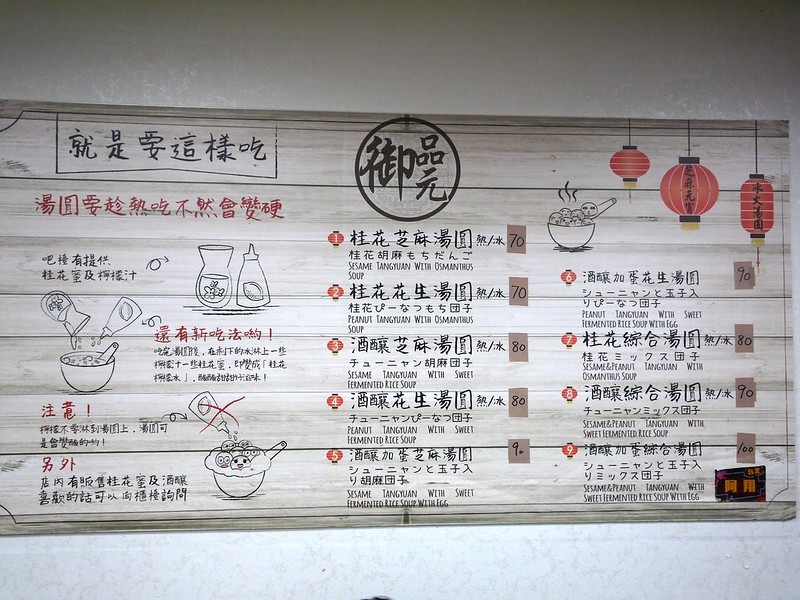 就是要這樣吃
湯圓要趁熱吃不然會變硬
吧檯有提供
桂花蜜及檸檬汁
還有新吃法喲！
吃完湯圓後，在剩下的冰淋上一些
檸檬汁一些桂花蜜，即變成「桂花
檸檬冰」，酸酸甜甜好滋味！
注意！
檸檬不要淋到湯圓上，湯圓可
是會變醜的喲！
另外
店內有販售桂花蜜及酒釀
喜歡的話可以向櫃檯詢問
御品元
1 桂花芝麻湯圓 熱/冰 70
桂花胡麻もちだんご
Sesame Tangyuan With Osmanthus
Soup
2 桂花花生湯圓 熱/冰 70
桂花ぴーなつもち団子
Peanut Tangyuan With Osmanthus
Soup
3 酒釀芝麻湯圓 熱/冰 80
チューニャン胡麻団子
Sesame Tangyuan With Sweet
Fermented Rice Soup
4 酒釀花生湯圓 熱/冰 80
チューニャンぴーなつ団子
Peanut Tangyuan With Sweet
Fermented Rice Soup
5 酒釀加蛋芝麻湯圓 90
シューニャンと玉子入
り胡麻団子
Sesame Tangyuan With Sweet
Fermented Rice Soup With Egg
芝麻元宵
冰火湯圓
6 酒釀加蛋花生湯圓 90
シューニャンと玉子入
りぴーなつ団子
Peanut Tangyuan With Sweet
Fermented Rice Soup With Egg
7 桂花綜合湯圓 熱/冰 80
桂花ミックス団子
Sesame&Peanut Tangyuan With
Osmanthus Soup
8 酒釀綜合湯圓 熱/冰 90
チューニャンミックス団子
Sesame&Peanut Tangyuan With
Sweet Fermented Rice Soup
9 酒釀加蛋綜合湯圓 100
シューニャンと玉子入
りミックス団子
Sesame&Peanut Tangyuan With
Sweet Fermented Rice Soup With Egg
阿翔